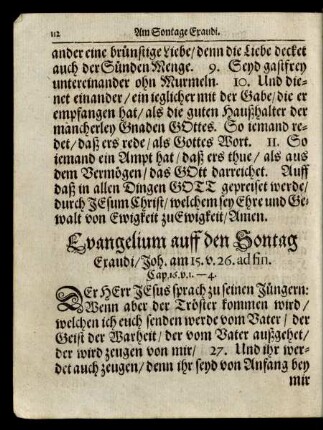 112 Am Sontage Exaudi.
ander eine brünstige Liebe/ denn die Liebe decket
auch der Sünden Menge. 9. Seyd gastfrey
untereinander ohn Murmeln. 10. Und die-
net einander/ ein ieglicher mit der Gabe/ die er
empfangen hat/ als die guten Haußhalter der
mancherley Gnaden GOttes. So iemand re-
det/ daß ers rede/ als Gottes Wort. 11. So
iemand ein Ampt hat/ daß ers thue/ als aus
dem Vermögen/ das GOtt darreichet. Auff
daß in allen Dingen GOTT gepreiset werde/
durch JEsum Christ/ welchem sey Ehre und Ge-
walt von Ewigkeit zu Ewigkeit/ Amen.
Evangelium auff den Sontag
Exaudi/ Joh. am 15. v. 26. ad fin.
Cap. 16. v. 1.—4.
DEr HErr JEsus sprach zu seinen Jüngern:
Wenn aber der Tröster kommen wird/
welchen ich euch senden werde vom Vater/ der
Geist der Warheit/ der vom Vater außgehet/
der wird zeugen von mir/ 27. Und ihr wer-
det auch zeugen/ denn ihr seyd von Anfang bey
mir